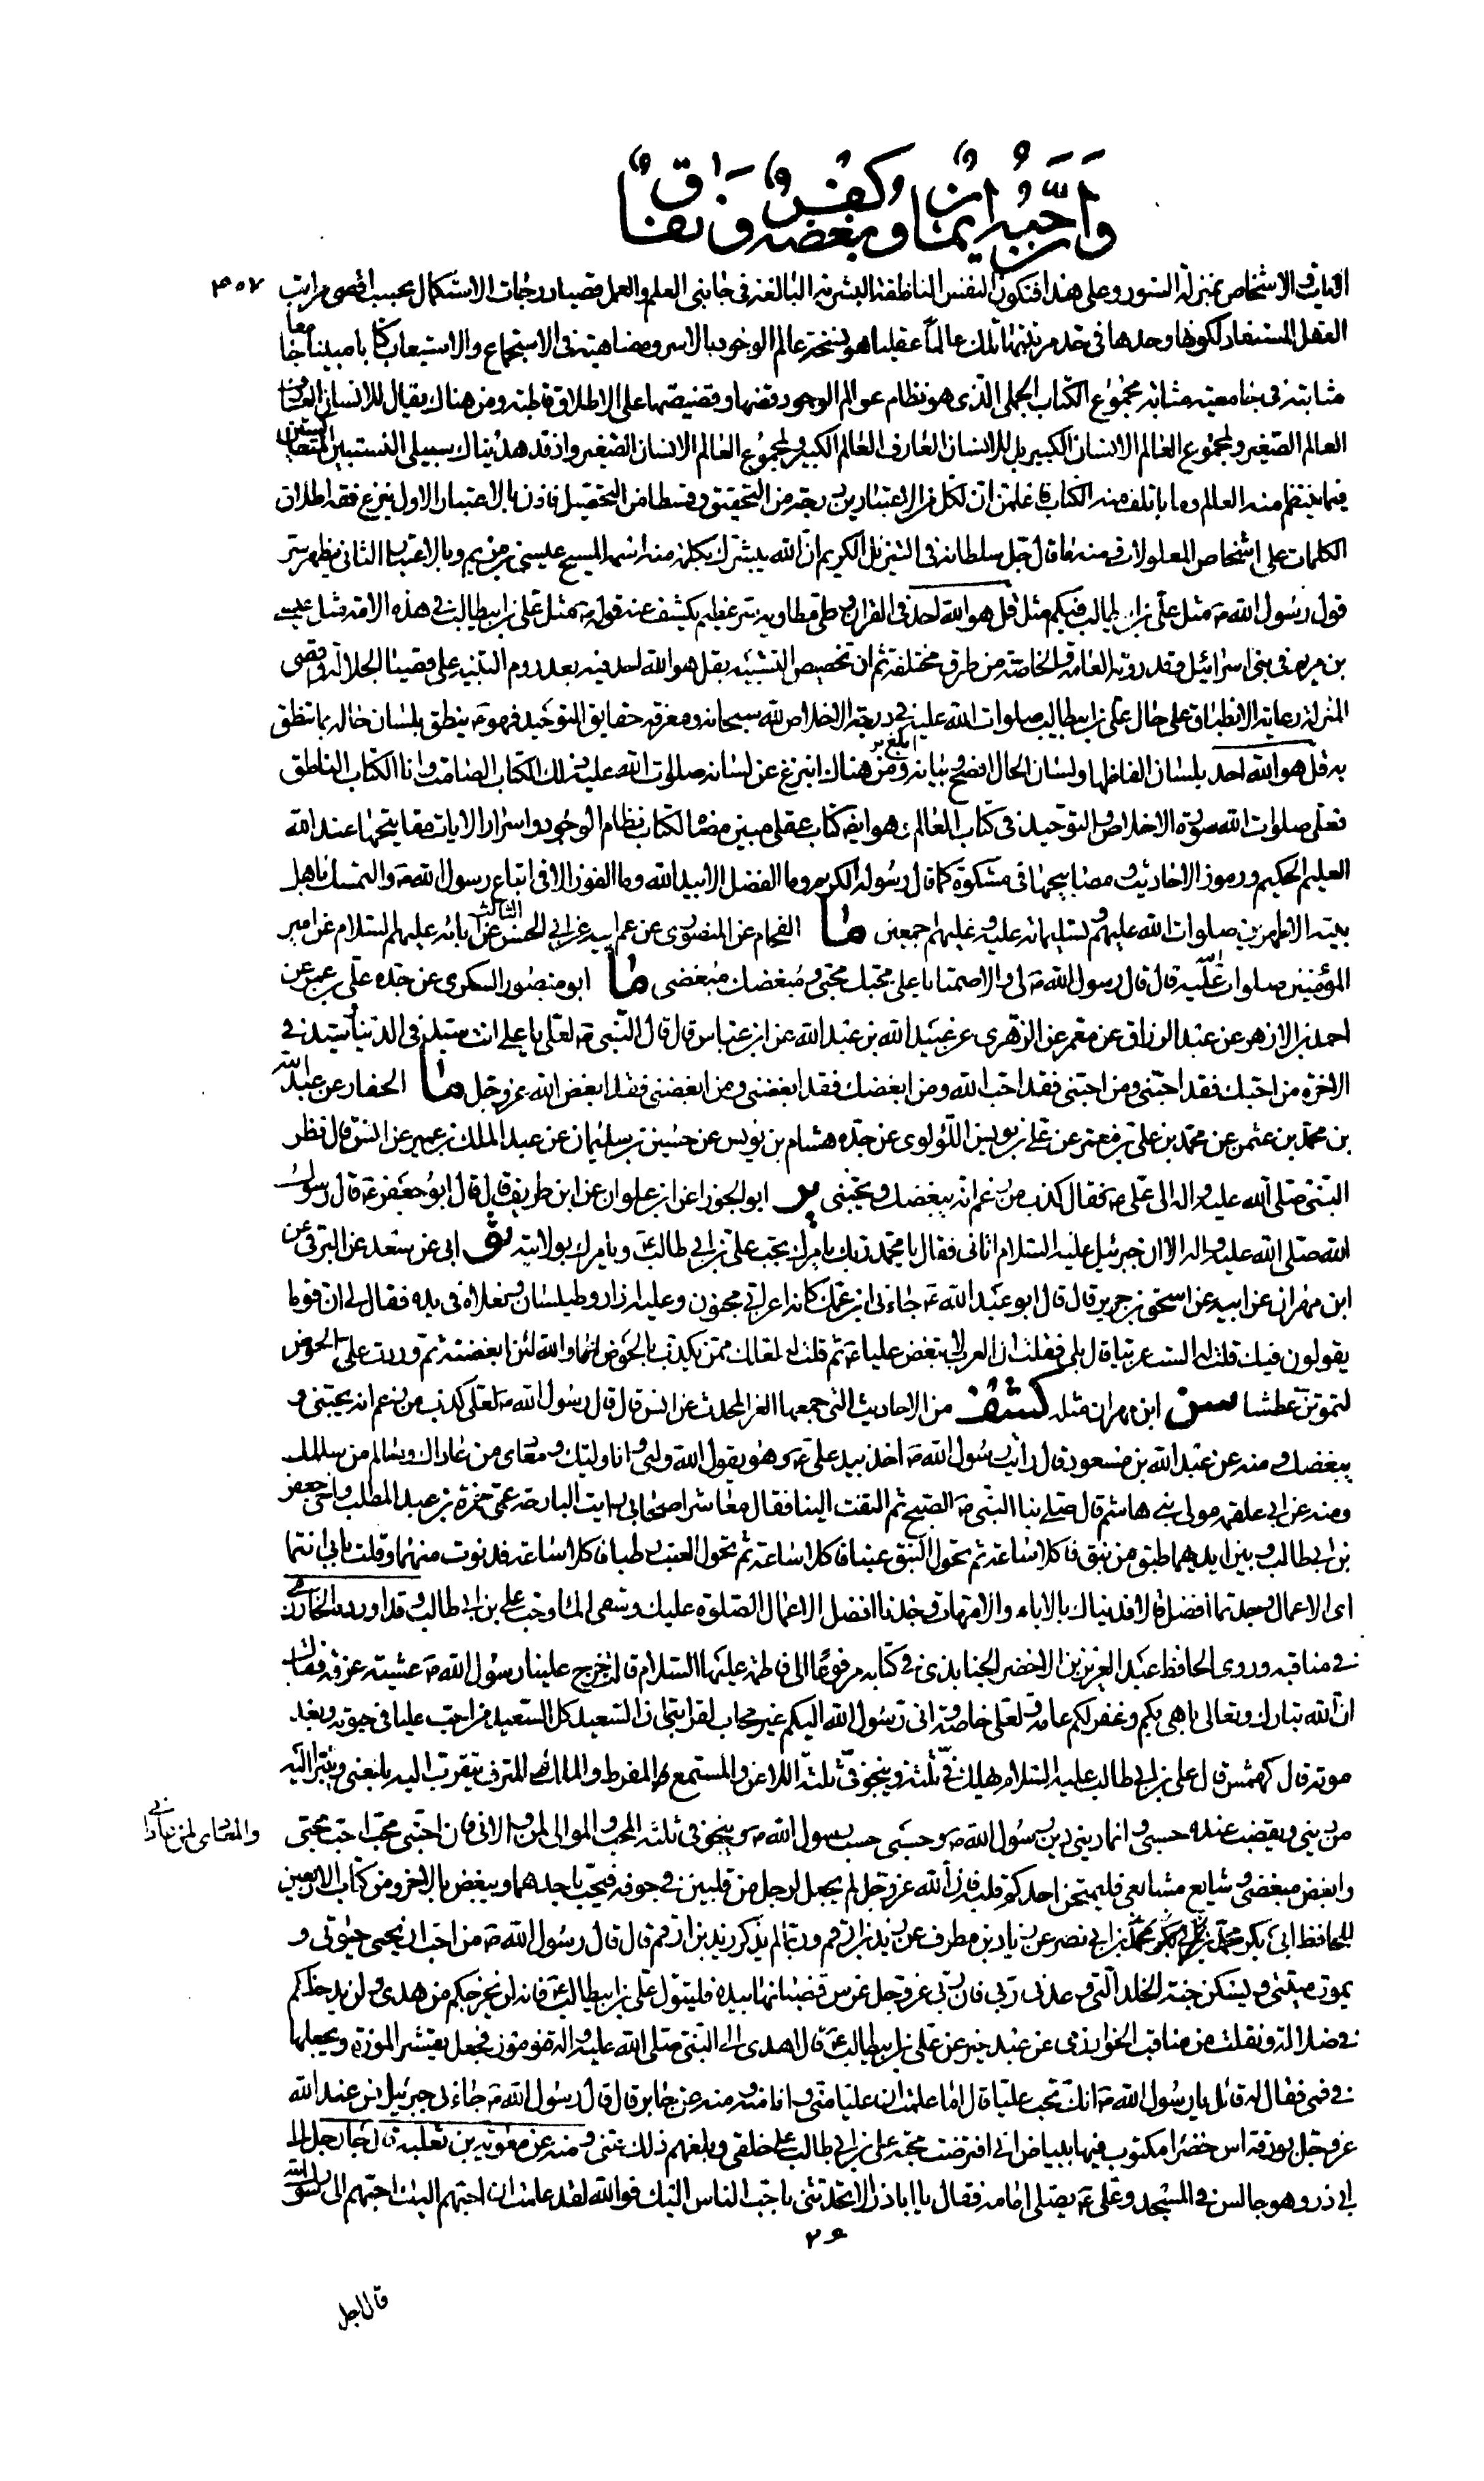 وأن حبه ايمان وبغضه كفر ونفاق
٣٥٧
الايات والاشخاص بمنزلة السور وعلى هذا فتكون النفس الناطقة البشرية البالغة فى جانبى العلم والعمل قصيا درجات الاستكمال بحسب اقصى مراتب
العقل المستفاد لكونها وحدها فى حد مرتبتها تلك عالما عقليا هو نسخة عالم الوجود بالاسر ومضاهيته فى الاستجماع والاستيعاب كتابا مبينا جامعا
مثابته فى جامعيته مثابة مجموع الكتاب الجملى الذى هو نظام عوالم الوجود قضها وقضيضها على الاطلاق قاطبة ومن هناك يقال للانسان العارف
العالم الصغير ولمجموع العالم الانسان الكبير بل للانسان العارف العالم الكبير ولمجموع العالم الانسان الصغير واذ قد هديناك سبيلى النسبتين المتعاكستين
فيما ينتظم منه العالم وما ياتلف منه الكتاب فاعلمن ان لكل من الاعتبارين درجة من التحقيق وقسطا من التحصيل فاذن بالاعتبار الاول ينزع فقه اطلاق
الكلمات على اشخاص المعلولات منه ما قال جل سلطانه فى التنزيل الكريم ان الله يبشرك بكلمة منه اسمه المسيح عيسى بن مريم وبالاعتبار الثانى يظهر سر
قول رسول الله ص مثل على بن ابى طالب فيكم مثل قل هو الله احد فى القران وفى طى مطاويه سر عظيم يكشف عنه قوله ص مثل على بن ابيطالب فى هذه الامة مثل عيسى
بن مريم فى بنى اسرائيل وقد روته العامة والخاصة من طرق مختلفة ثم ان تخصيص التشبيه بقل هو الله احد فيه بعد روم التنبيه على قصيا الجلالة وقصى
المنزلة رعاية الانطباق على حال على بن ابيطالب صلوات الله عليه فى درجة الاخلاص لله سبحانه ومعرفة حقايق التوحيد فهو ع ينطق بلسان حاله بما تنطق
به قل هو الله احد بلسان الفاظها ولسان الحال افصح وبيانه ابلغ ومن هناك انبزغ عن لسانه صلوات الله عليه ذلك الكتاب الصامت وانا الكتاب الناطق
فعلى صلوات الله سورة الاخلاص والتوحيد فى كتاب العالم وهو ايضا كتاب عقلى مبين مضاه لكتاب نظام الوجود واسرار الايات مفاتيحها عند الله
العليم الحكيم ورموز الاحاديث مصابيحها فى مشكوة كما قال رسوله الكريم وما الفضل الا بيد الله وما الفوز الا فى اتباع رسول الله ص والتمسك باهل
بيته الاطهرين صلوات الله عليهم وتسليماته عليه وعليهم اجمعين ما الفحام عن المنصورى عن عم ابيه عن ابى الحسن الثالث عن آبائه عليهم السلام عن امير
المؤمنين صلوات الله عليه قال قال رسول الله ص لى والا صمتا يا على محبك محبى ومبغضك مبغضى ما ابو منصور السكرى عن جده على بن عمر عن
احمد بن الازهر عن عبد الرزاق عن معمر عن الزهرى عن عبيد الله بن عبد الله عن ابن عباس قال قال النبى ص لعلى يا على انت سيد فى الدنيا سيد فى
الاخرة من احبك فقد احبنى ومن احبنى فقد احب الله ومن ابغضك فقد ابغضنى ومن ابغضنى فقد ابغض الله عز وجل ما الحفار عن عبد الله
بن محمد بن عثمن عن محمد بن على بن معمر عن على بن يونس اللؤلوى عن جده هشام بن يونس عن حسين بن سليمان عن عبد الملك بن عمير عن انس قال نظر
النبى صلى الله عليه واله الى على ع فقال كذب من زعم انه يبغضك ويحبنى ير ابو الجوزا عن ابن علوان عن ابن طريف قال قال ابو جعفر ع قال رسول
الله صلى الله عليه واله الا ان جبرئيل عليه السلام اتانى فقال يا محمد ربك يامرك بحب على بن ابى طالب ع ويامرك بولايته ثو ابى عن سعد عن البرقى عن
ابن مهران عن ابيه عن اسحق بن جرير قال قال ابو عبد الله ع جاءنى ابن عمك كانه اعرابى مجنون وعليه ازار وطيلسان ونعلاه فى يده فقال لى ان قوما
يقولون فيك قلت له الست عربيا قال بلى فقلت ان العرب لا تبغض عليا ع ثم قلت له لعلك ممن يكذب بالحوض اما والله لئن ابغضته ثم وردت على الحوض
لتموتن عطشا سن ابن مهران مثله كشف من الاحاديث التى جمعها العز المحدث عن انس قال قال رسول الله ص لعلى كذب من زعم انه يحبنى و
يبغضك ومنه عن عبد الله بن مسعود قال رايت رسول الله ص اخذ بيد على ع وهو يقول الله وليى وانا وليك ومعادى من عاداك ومسالم من سالمك
ومنه عن ابى علقمة مولى بنى هاشم قال صلى بنا النبى ص الصبح ثم التفت الينا فقال معاشر اصحابى رايت البارحة عمى حمزة بن عبد المطلب واخى جعفر
بن ابى طالب وبين ايديهما طبق من نبق فاكلا ساعة ثم تحول النبق عنبا فاكلا ساعة ثم تحول العنب رطبا فاكلا ساعة فدنوت منهما وقلت بابى انتما
اى الاعمال وجدتما افضل قالا فديناك بالاباء والامهات وجدنا افضل الاعمال الصلوة عليك وسقى الماء وحب على بن ابى طالب وقد اورده الخوارزمى
فى مناقبه وروى الحافظ عبد العزيز بن الاخضر الجنابذى فى كتابه مرفوعا الى فاطمة عليها السلام قالت خرج علينا رسول الله ص عشية عرفة فقال
ان الله تبارك وتعالى باهى بكم وغفر لكم عامة ولعلى خاصة وانى رسول الله اليكم غير محاب لقرابتى ان السعيد كل السعيد من احب عليا فى حيوته وبعد
موته قال كهمش قال على بن ابى طالب عليه السلام هلك فى ثلثة وينجو فى ثلثة اللاعن والمستمع والمفرط والملك المترف يتقرب اليه بلعنى ويتبرا اليه
من دينى ويقضب عنده حسبى وانما دينى دين رسول الله ص وحسبى حسب رسول الله ص وينجو فى ثلثة المحب والموالى لمن والانى والمعادى لمن عادانى فان احبنى محب احب محبى
وابغض مبغضى وشايع مشايعى فليمتحن احدكم قلبه فان الله عز وجل لم يجعل لرجل من قلبين فى جوفه فيحب باحدهما ويبغض بالاخر ومن كتاب الاربعين
للحافظ ابى بكر محمد بن ابى نصر عن زياد بن مطرف عن زيد بن ارقم وربما لم يذكر زيد بن ارقم قال قال رسول الله ص من احب ان يحيى حيوتى و
يموت ميتتى ويسكن جنة الخلد التى وعدنى ربى فان ربى عز وجل غرس قضبانها بيده فليتول على بن ابيطالب ع فانه لن يخرجكم من هدى ولن يدخلكم
فى ضلالة ونقلت من مناقب الخوارزمى عن عبد خير عن على بن ابيطالب ع قال اهدى الى النبى صلى الله عليه واله قنو موز فجعل يقشر الموزة ويجعلها
فى فمى فقال له قائل يا رسول الله ص انك تحب عليا قال اما علمت ان عليا منى وانا منه ومنه عن جابر قال قال رسول الله ص جاءنى جبرئيل من عند الله
عز وجل بورقة اس خضرا مكتوب فيها ببياض انى افترضت محبة على بن ابى طالب على خلقى فبلغهم ذلك عنى ومنه عن معوية بن ثعلبة قال جاء رجل الى
ابى ذر وهو جالس فى المسجد وعلى ع يصلى امامه فقال يا ابا ذر الا تحدثنى باحب الناس اليك فوالله لقد علمت ان احبهم اليك احبهم الى رسول الله
٢٤
قال اجل